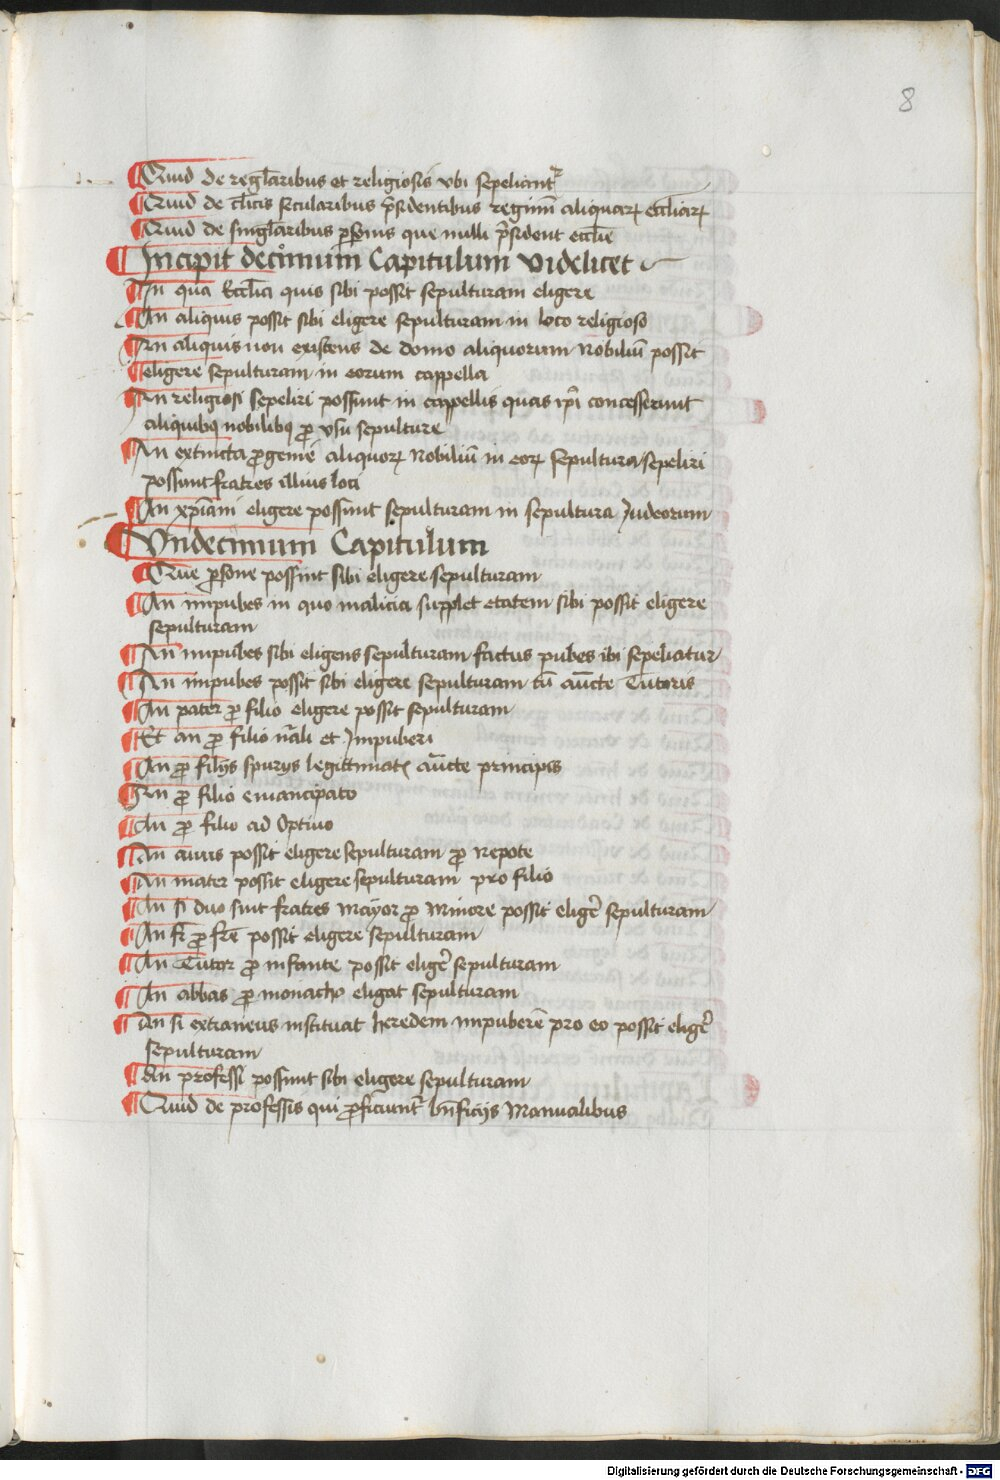 8
Quid de reglaribus et religiosis vbi sepeliantr
Quid de clicis secularibus psidentibus regimi aliquarꝝ eccliarꝝ
Quid de singlaribus psonis que nulli psident ecclie
Incipit decimum Capitulum videlicet
In qua Ecclia quis sibi possit sepulturam eligere
An aliquis possit sibi eligere sepulturam in loco religioso
An aliquis non existens de domo aliquorum Nobiliū possit
eligere sepulturam in eorum cappella
An religiosi sepeliri possunt in cappellis quas ipi concesserunt
aliquibꝫ nobilibꝫ ꝓ vsu sepulture
An extincta ꝓgenie aliquorꝝ Nobiliū in eorꝝ sepultura sepeliri
possunt fratres illius loci
An xpiani eligere possunt sepulturam in sepultura Judeorum
Vndecimum Capitulum
Que psone possint sibi eligere sepulturam
An impubes in quo malicia supplet etatem sibi possit eligere
sepulturam
An impubes sibi eligens sepulturam factus pubes ibi sepeliatur
An impubes possit sibi eligere sepulturam cū aucte Tutoris
An pater ꝓ filio eligere possit sepulturam
Et an ꝓ filio nāli et Impuberi
An ꝓ filijs spurijs legittimatꝭ aucte principis
An ꝓ filio emancipato
An ꝓ filio ad Optiuo
An auus possit eligere sepulturam ꝓ Nepote
An mater possit eligere sepulturam pro filio
An si duo sint fratres Mayor ꝓ Minore possit eligē sepulturam
An fr ꝓ fre possit eligere sepulturam
An Tutor ꝓ infante possit eligē sepulturam
An abbas ꝓ monacho eligat sepulturam
An si extraneus instituat heredem impuberē pro eo possit eligē
sepulturam
An professi possunt sibi eligere sepulturam
Quid de professis qui ꝓficiuntr bnficijs Manualibus
Digitalisierung gefördert durch die Deutsche Forschungsgemeinschaft - DFG